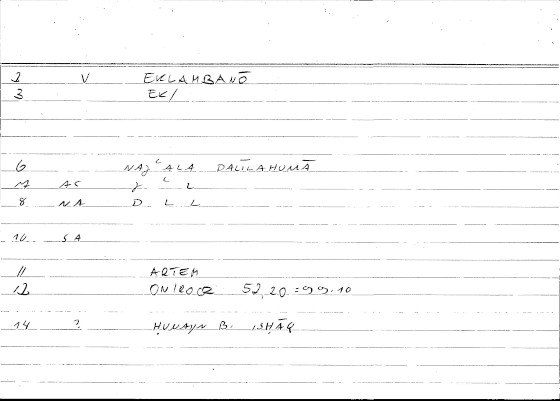 2 V EKLAMBANŌ
3 EK/
6 NAǧʿALA DALĪLAHUMĀ
AS ǧ ʿ L
8 NA D L L
10 SA
11 ARTEM
12 ONIROCR 52,20 = 99.10
14 ? ḤUNAYN B. ISḤĀQ